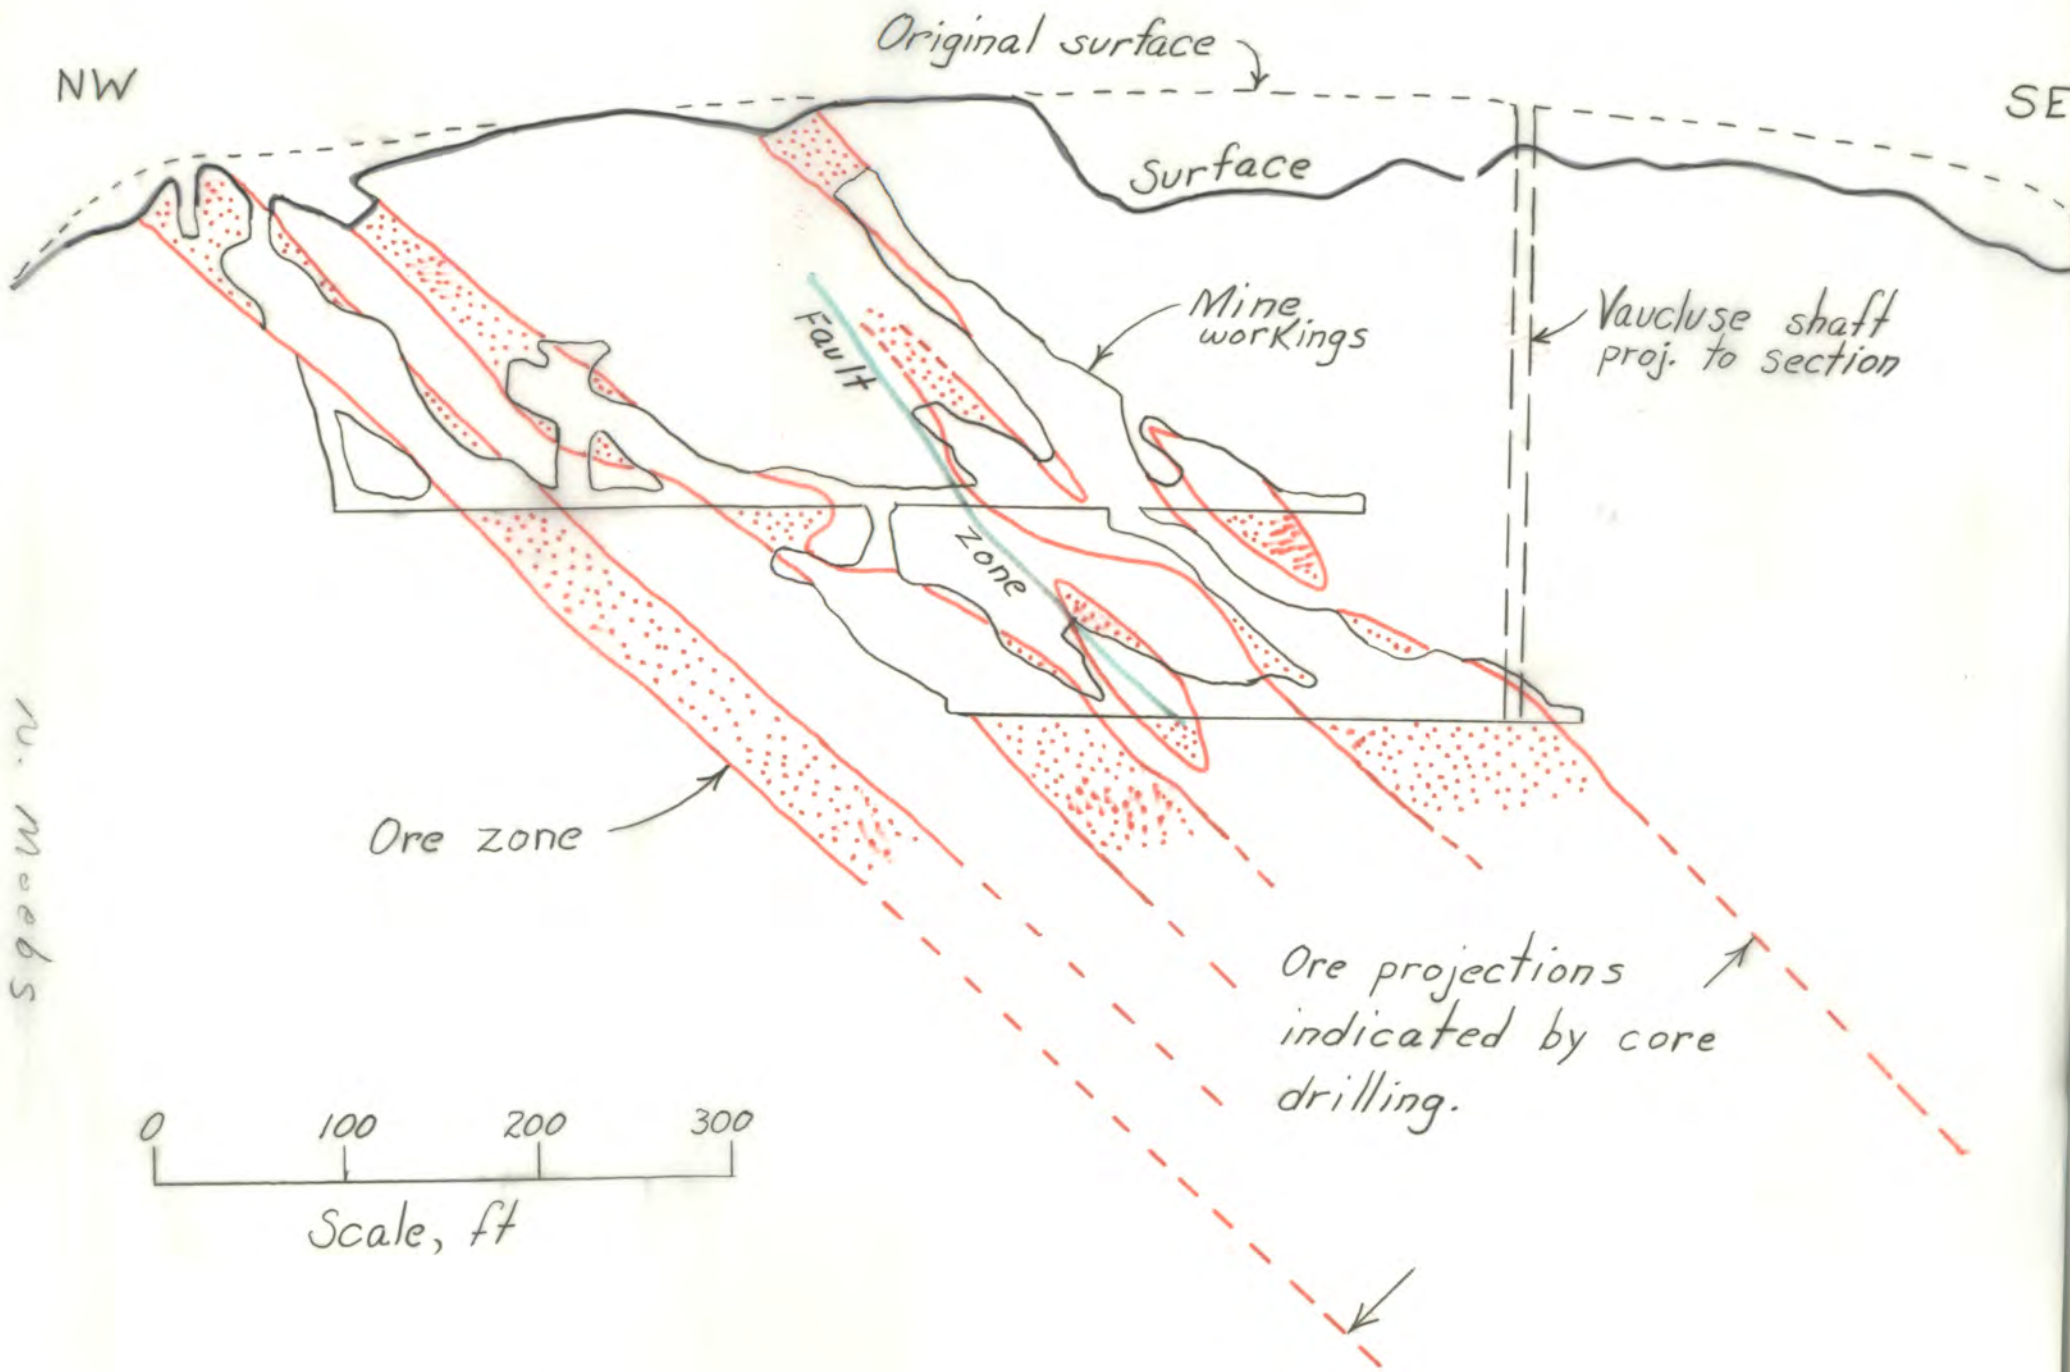 Original surface
NW
SE
Surface
Mine
workings
Vaucluse shaft
proj. to section
Fault
zone
Ore zone
Ore projections
indicated by core
drilling.
0 100 200 300
Scale, ft
N. Moebs